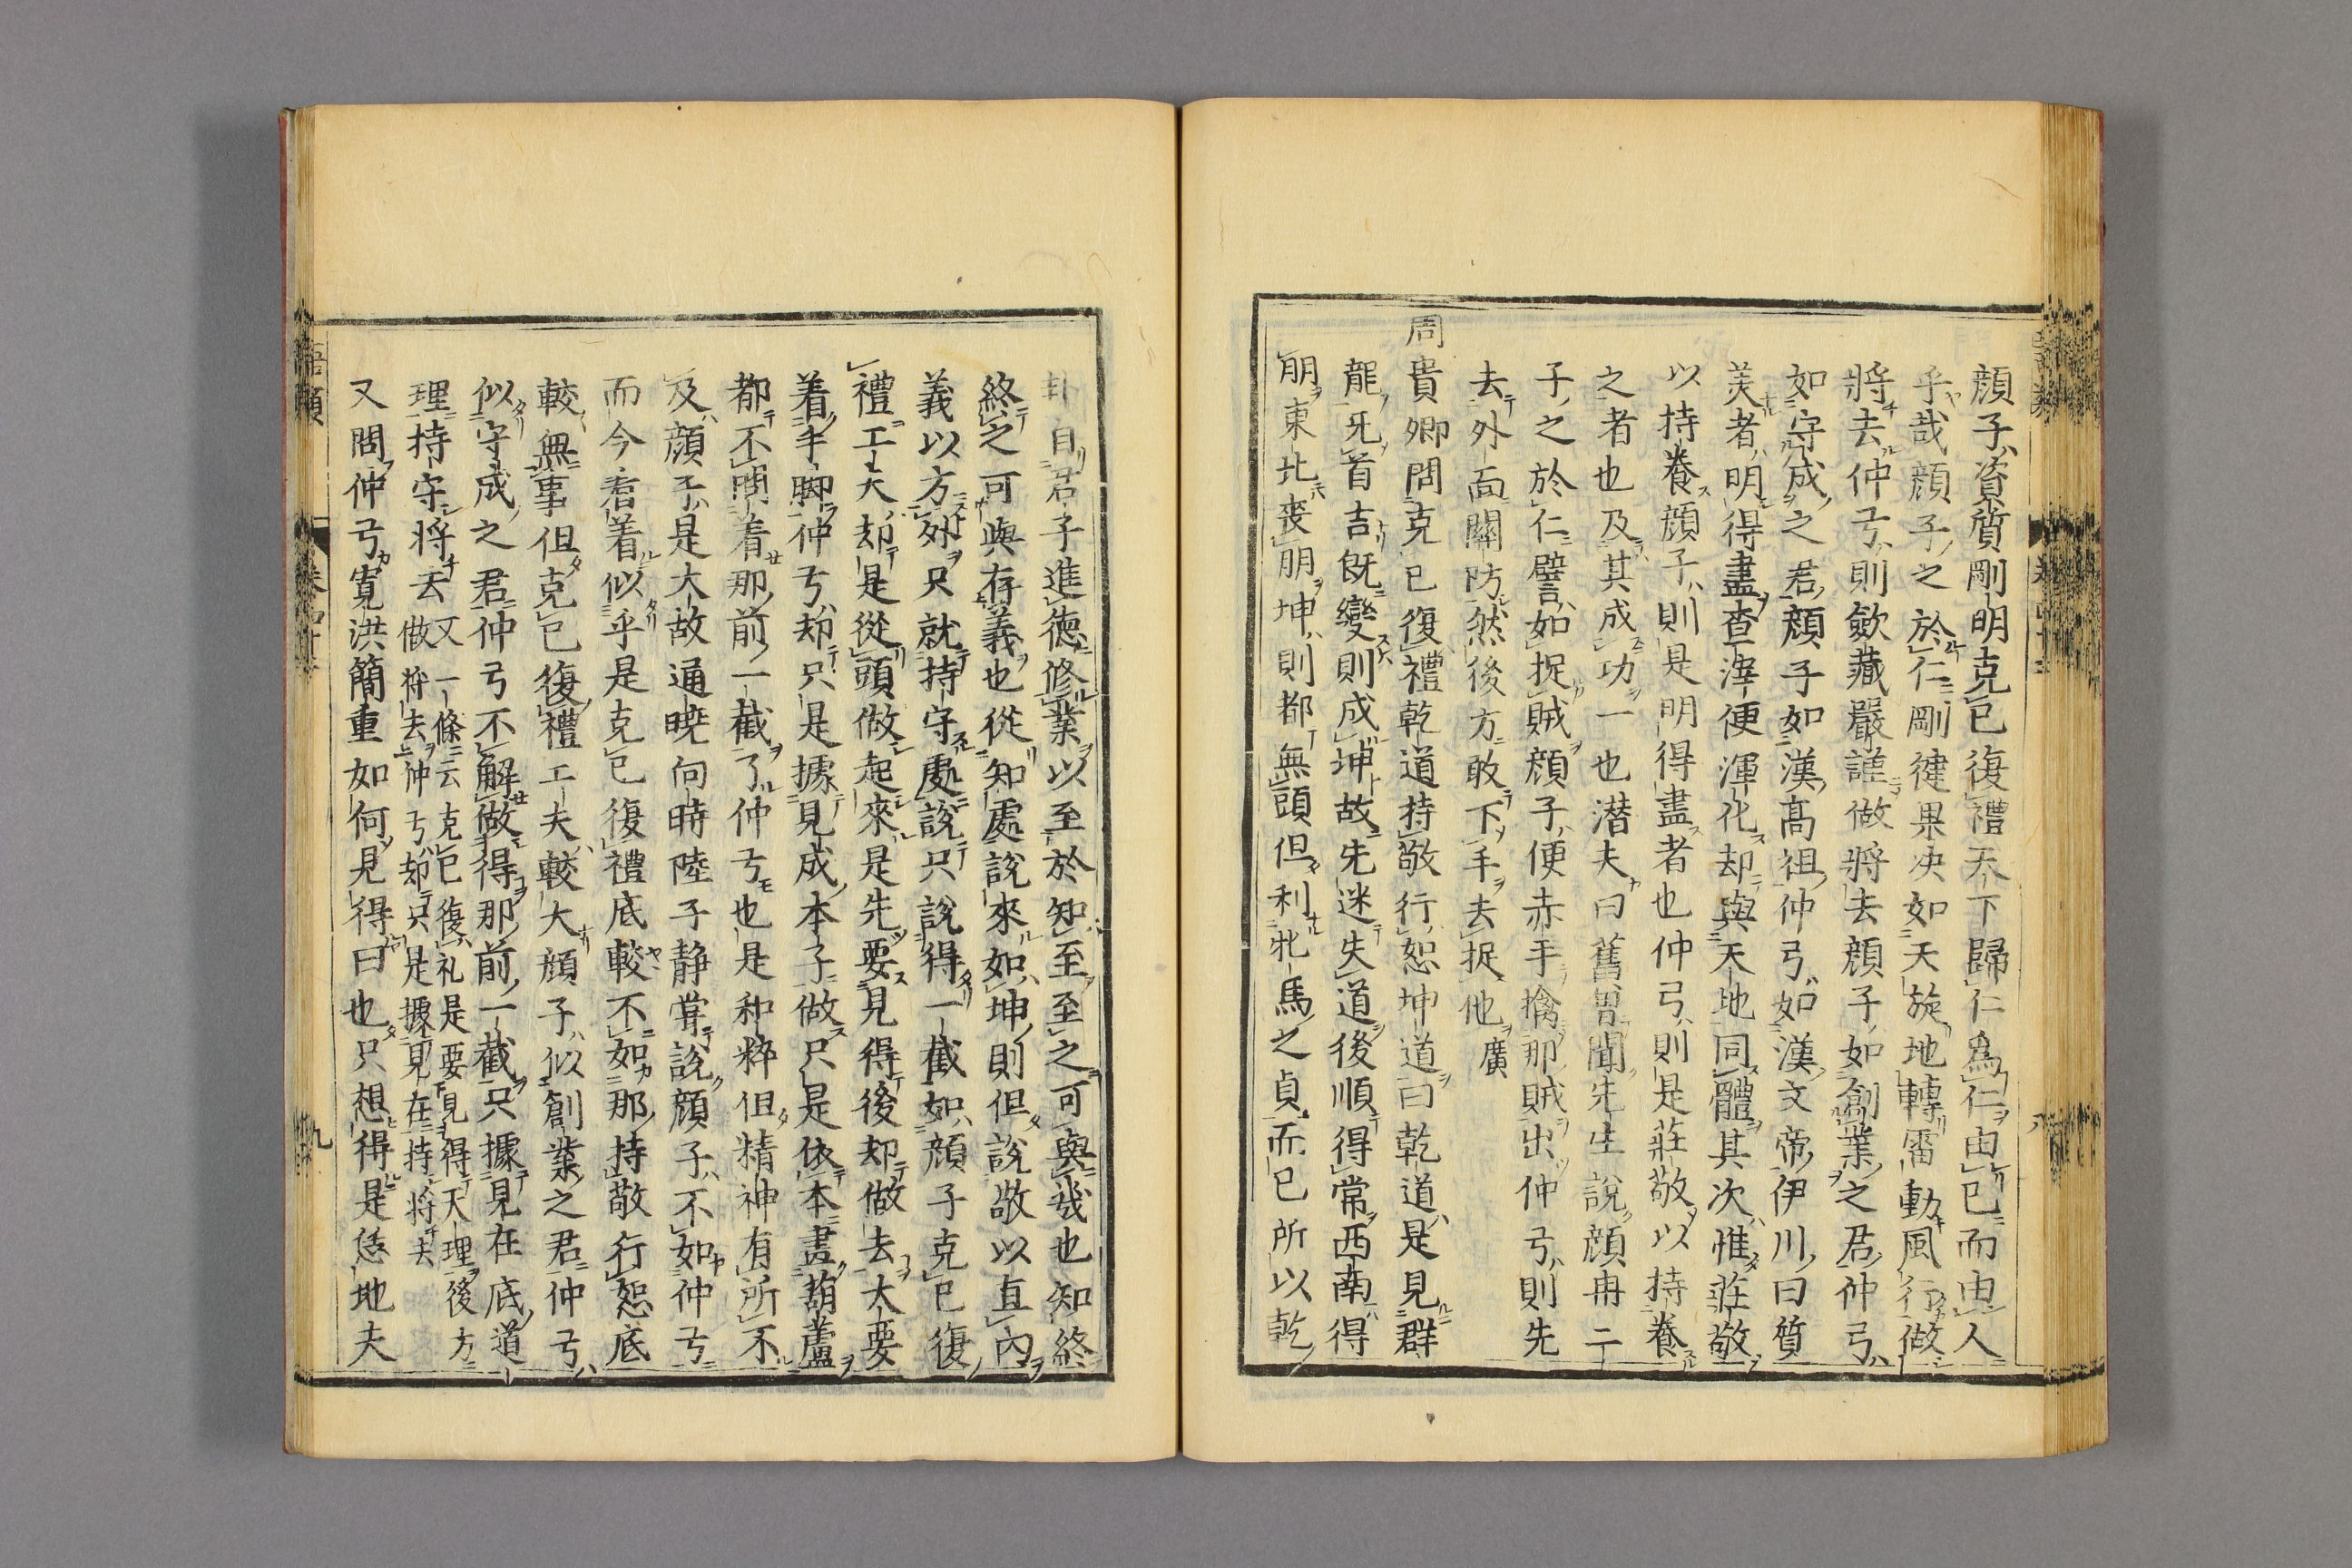 顔子資質剛明克己復禮天下歸仁爲仁由己而由人
乎哉顔子之於仁剛健果决如天旋地轉雷動風行做
將去仲弓則歛藏嚴謹做將去顔子如創業之君仲弓
如守成之君顔子如漢高祖仲弓如漢文帝伊川曰質
美者明得盡査滓便渾化却與天地同體其次惟莊敬
以持養顔子則是明得盡者也仲弓則是莊敬以持養
之者也及其成功一也潜夫曰舊曾聞先生説顔冉二
子之於仁譬如捉賊顔子便赤手擒那賊出仲弓則先
去外面關防然後方敢下手去捉他廣
周貴卿問克己復禮乾道持敬行恕坤道曰乾道是見群
龍无首吉既變則成坤故先迷失道後順得常西南得
朋東北喪朋坤則都無頭但利牝馬之貞而已所以乾
卦自君子進德修業以至於知至至之可與幾也知終
終之可與存義也從知處說來如坤則但說敬以直內
義以方外只就持守處說只說得一截如顔子克己復
禮工夫却是從頭做起來是先要見得後却做去大要
着手脚仲弓却只是據見成本子做只是依本畫葫蘆
都不問着那前一截了仲弓也是和粹但精神有所不
及顔子是大故通曉向時陸子静嘗說顔子不如仲弓
而今看着似乎是克己復禮底較不如那持敬行恕底
較無事但克己復禮工夫較大顔子似創業之君仲弓
似守成之君仲弓不解做得那前一截只據見在底道
理持守將去又一條云克己復礼是要見得天理後方
做將去仲弓却只是據見在持將去
又問仲弓寬洪簡重如何見得曰也只想得是恁地夫
語類
卷四十二
九